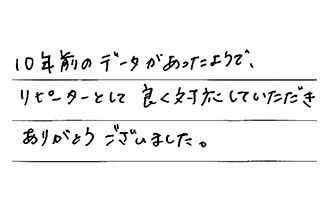 10年前のデータがあったようで、
リピーターとして良く対応していただき
ありがとうございました。